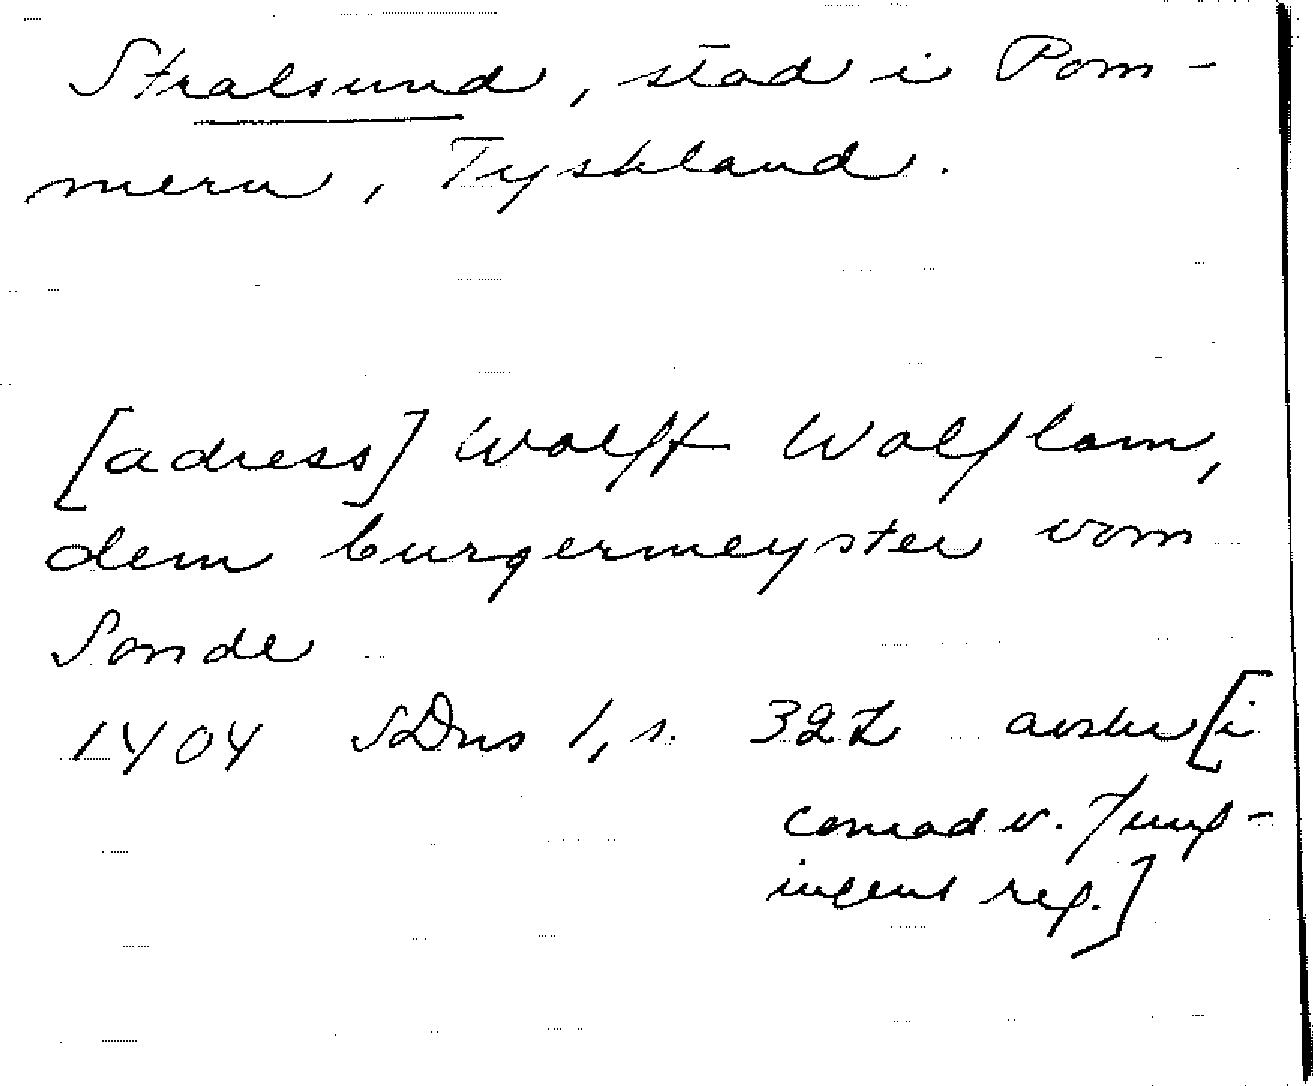 Stralsund, stad i Pom-
mern, Tyskland.
[adress] Wolff Wolflam,
dem burgermeyster vom
Sonde
1404 SDns 1, s. 327 avskr [i
Conrad v. Jung-
ingens reg.]